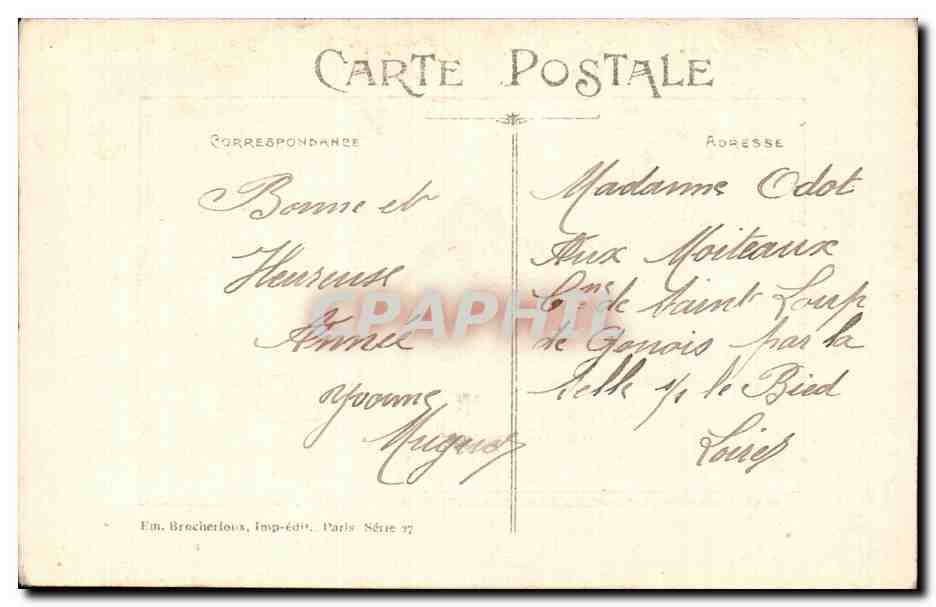 CARTE POSTALE
CORRESPONDANCE
Bonne et
Heureuse
Année
Yvonne
Mignot
ADRESSE
Madame Odot
Aux Moiteaux
Cne de Saint Loup
de Gonois par la
Selle s/ le Bied
Loiret
CPAPHIL
Em. Brocherioux, Imp-édit. Paris Série 27